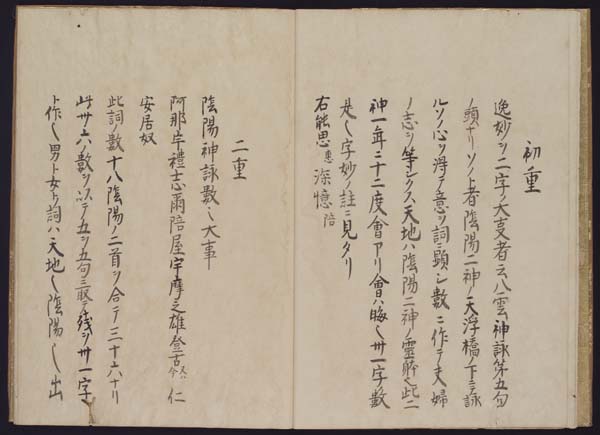 初重
逸妙ノ二字ノ大事者云八雲神詠第五句
ノ頭ナリソノ者陰陽二神ノ天浮橋ノ下ニテ詠
ルソノ心ヲ得テ意ヲ詞ニ顕シ数ニ作テ夫婦
ノ志シヲ等シクス天地ハ陰陽二神ノ霊 此二
神一年二十二度會アリ會ハ晦 卅一字ノ数
是 字妙ノ註ニ見タリ
右能思惠深憶陪
二重
陰陽神詠数之大事
阿那 禮士忘爾陪屋宇摩之雄登古 仁
安居奴
此詞ノ数十八陰陽ノ二首ヲ合テ三十六ナリ
此卅六ノ数ヲ以テ五ヲ五句ニ取テ残ヲ卅一字
ト作 男ト女ト詞ハ天地 陰陽 出